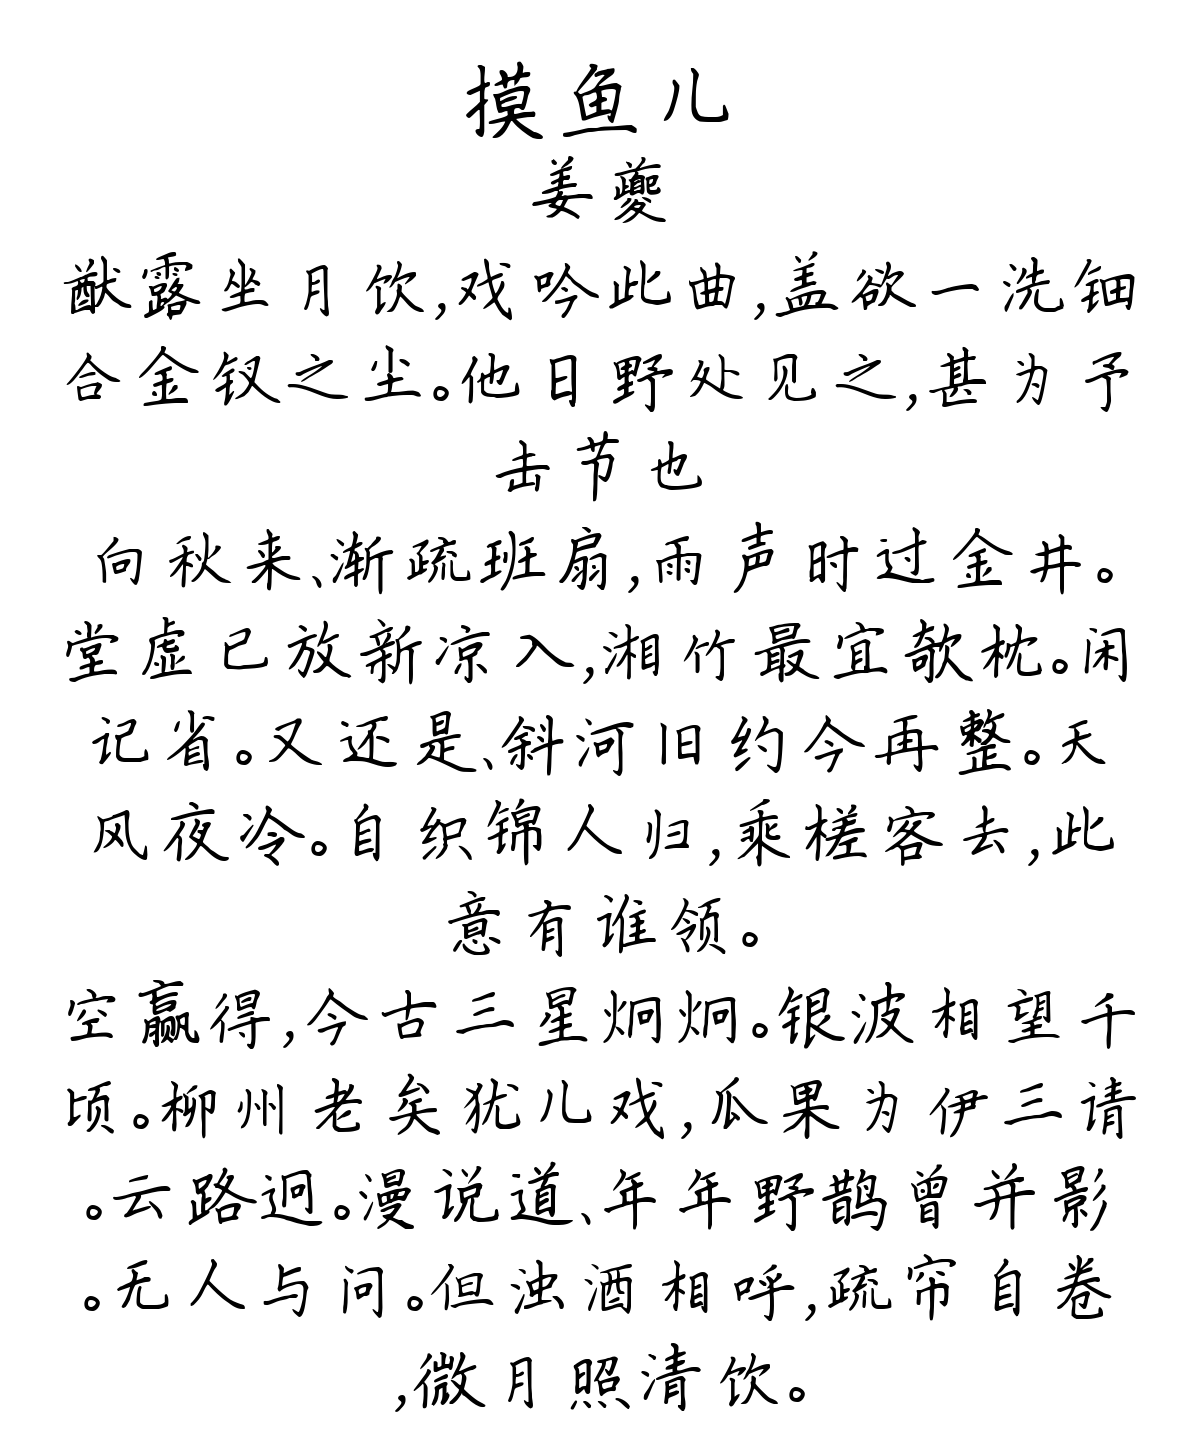 摸鱼儿
姜夔
猷露坐月饮,戏吟此曲,盖欲一洗钿
合金钗之尘。他日野处见之,甚为予
击节也
向秋来、渐疏班扇,雨声时过金井。
堂虚已放新凉入,湘竹最宜欹枕。闲
记省。又还是、斜河旧约今再整。天
风夜冷。自织锦人归,乘槎客去,此
意有谁领。
空赢得,今古三星炯炯。银波相望千
顷。柳州老矣犹儿戏,瓜果为伊三请
。云路迥。漫说道、年年野鹊曾并影
。无人与问。但浊酒相呼,疏帘自卷
,微月照清饮。